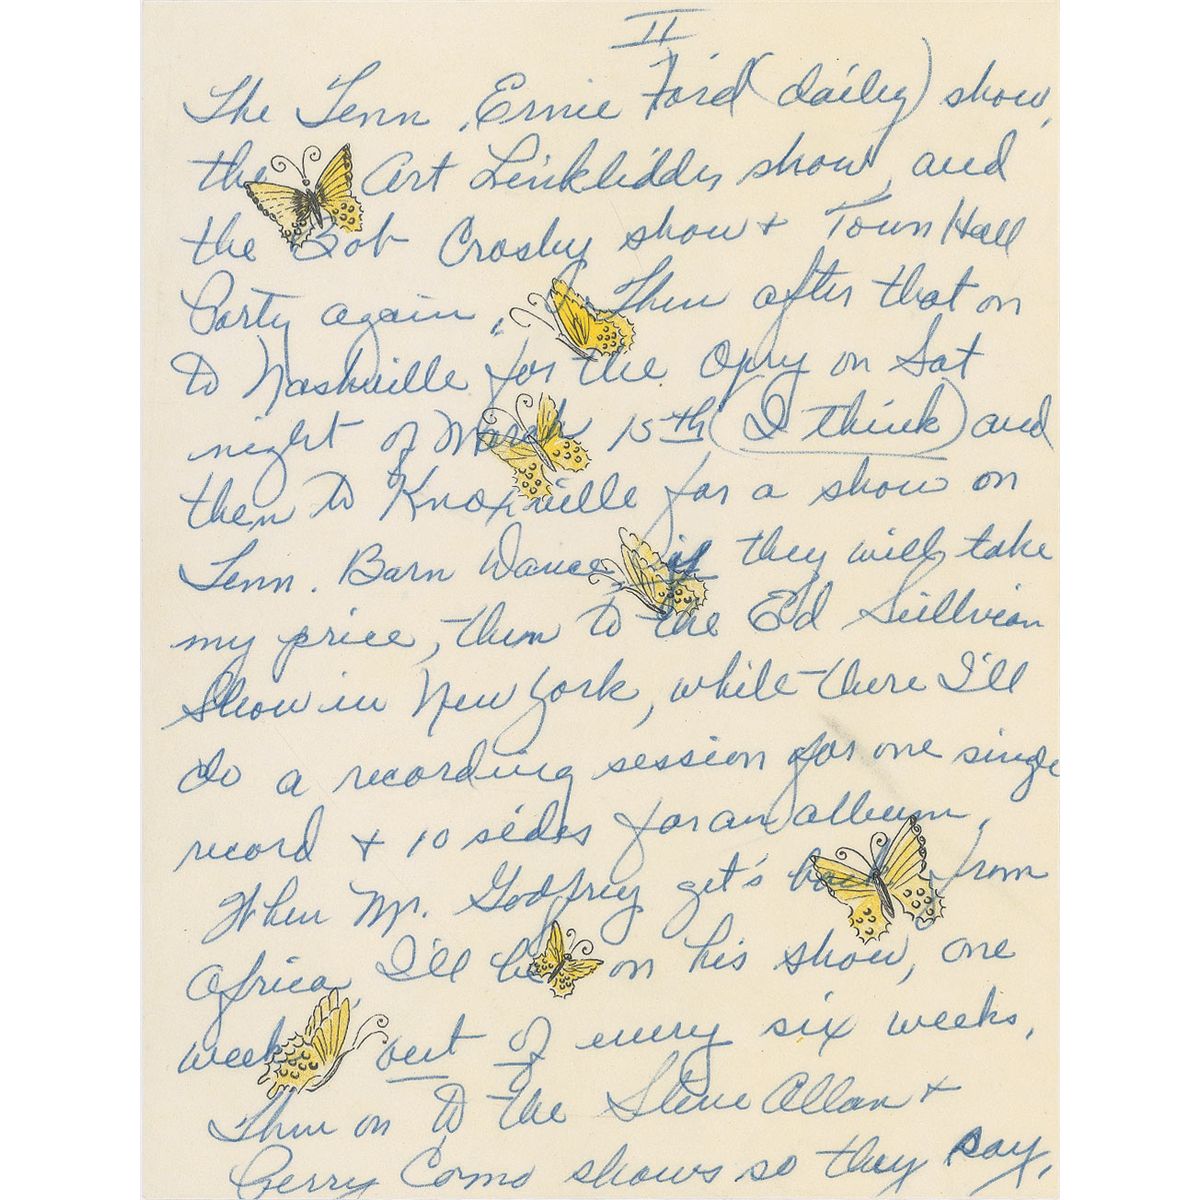 II
The Tenn. Ernie Ford (daily) show,
the Art Linkliddy show, and
the Bob Crosby show + Town Hall
Party again, Then after that on
to Nashville for the Opry on Sat
night of March 15th (I think) and
then to Knoxville for a show on
Tenn. Barn Dance, if they will take
my price, then to the Ed Sullivian
Show in New York, while there I'll
do a recording session for one single
record + 10 sides for an album.
When Mr. Godfrey get's back from
Africa, I'll be on his show, one
week out of every six weeks.
Then on to the Steve Allan +
Perry Como shows so they say.